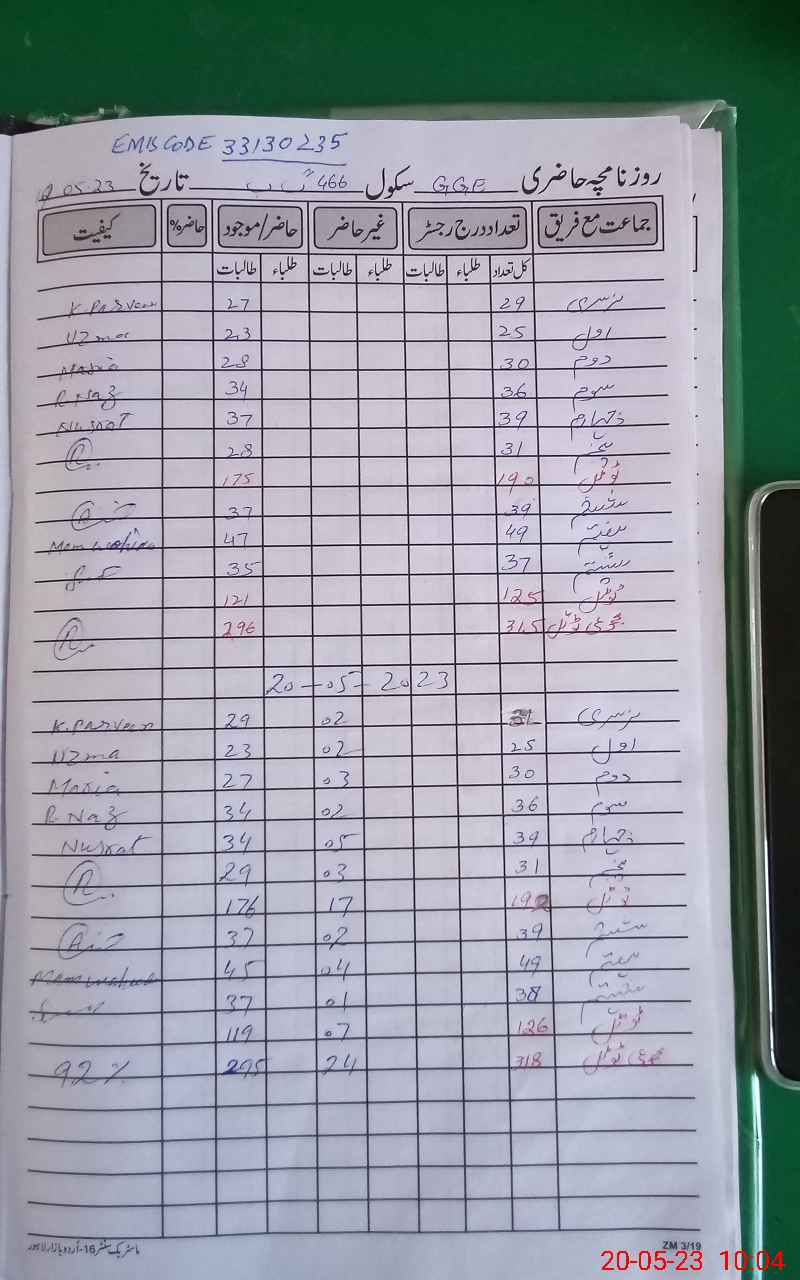 EMIS CODE 33130235
روزنامچہ حاضری GGE سکول 466 گ ب تاریخ 05-23
جماعت مع فریق تعداد درج رجسٹر غیر حاضر حاضر/موجود حاضر% کیفیت
کل تعداد طلباء طالبات طلباء طالبات طلباء طالبات
نرسری 29 27 K. Parveen
اول 25 23 Uzma
دوم 30 28 Maria
سوم 36 34 R Naz
چہارم 39 37 Nusrat
پنجم 31 28
ٹوٹل 190 175
ششم 39 37
ہفتم 49 47
ہشتم 37 35
ٹوٹل 125 121
ٹوٹل 315 296
20-05-2023
نرسری 31 02 29 K. Parveen
اول 25 02 23 Uzma
دوم 30 03 27 Maria
سوم 36 02 34 R Naz
چہارم 39 05 34 Nusrat
پنجم 31 03 29
ٹوٹل 192 17 176
ششم 39 02 37
ہفتم 49 04 45
ہشتم 38 01 37
ٹوٹل 126 07 119
ٹوٹل 318 24 295 92%
ماسٹر بک سنٹر 16-اردو بازار لاہور ZM 3/19
20-05-23 10:04